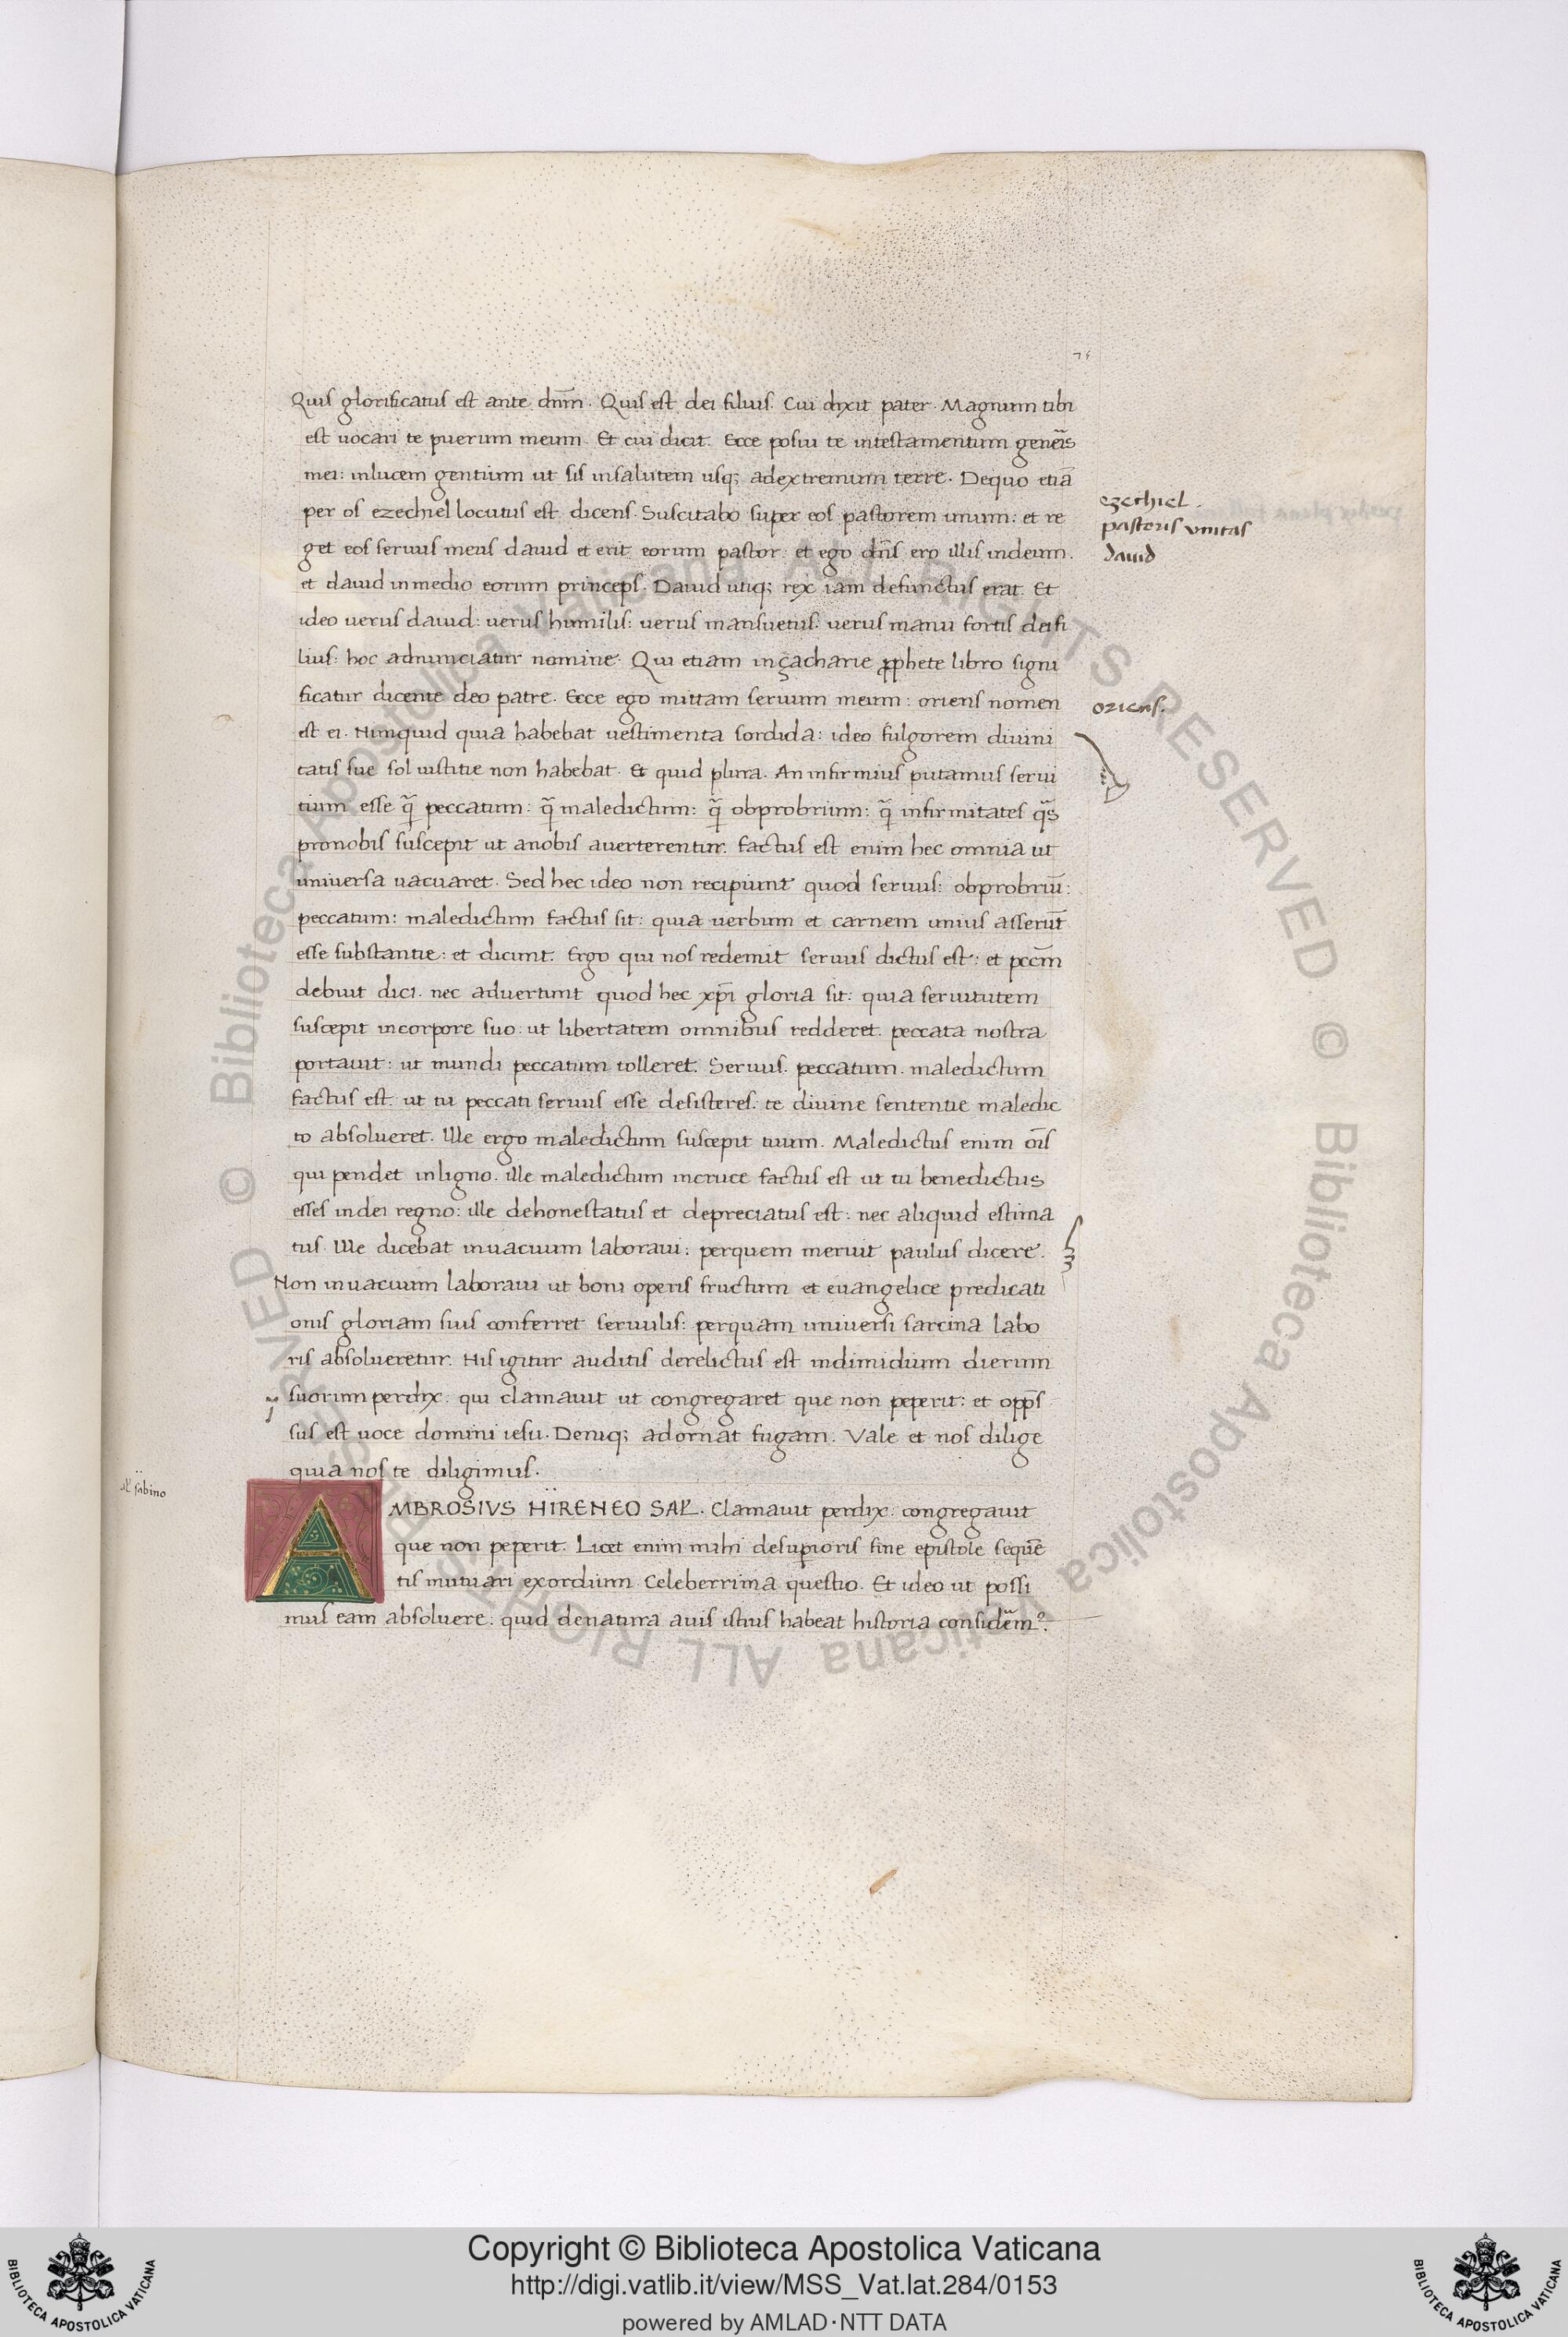 75
Quis glorificatus est ante dnm̄. Quis est dei filius. Cui dixit pater. Magnum tibi
est uocari te puerum meum. Et cui dicit. Ecce posui te intestamentum gener̄is
mei: inlucem gentium ut sis insalutem usq; adextremum terre. Dequo etiā
per os ezechiel locutus est dicens. Suscitabo super eos pastorem unum: et re
get eos seruus meus dauid et erit eorum pastor: et ego dn̄s ero illis indeum.
et dauid inmedio eorum princeps. Dauid utiq; rex iam defunctus erat. Et
ideo uerus dauid: uerus humilis: uerus mansuetus: uerus manu fortis dei fi
lius: hoc adnunciatur nomine. Qui etiam inçacharie ꝓphete libro signi
ficatur dicente deo patre. Ecce ego mittam seruum meum: oriens nomen
est ei. Nunquid quia habebat uestimenta sordida: ideo fulgorem diuini
tatis sue sol iustitie non habebat. Et quid plura. An infirmius putamus serui
tium esse q̄ peccatum: q̄ maledictum: q̄ obprobrium: q̄ infirmitates q̄s
pronobis suscepit ut anobis auerterentur. factus est enim hec omnia ut
uniuersa uacuaret. Sed hec ideo non recipiunt quod seruus: obprobriū:
peccatum: maledictum factus sit: quia uerbum et carnem unius asserūt
esse substantie: et dicunt. Ergo qui nos redemit seruus dictus est: et pccm̄
debuit dici. nec aduertunt quod hec xp̄i gloria sit: quia seruitutem
suscepit incorpore suo. ut libertatem omnibus redderet. peccata nostra
portauit: ut mundi peccatum tolleret. Seruus. peccatum. maledictum
factus est. ut tu peccati seruus esse desisteres: te diuine sententie maledic
to absolueret. Ille ergo maledictum suscepit tuum. Maledictus enim oīs
qui pendet inligno. ille maledictum incruce factus est ut tu benedictus
esses indei regno: ille dehonestatus et depreciatus est: nec aliquid estima
tus. Ille dicebat inuacuum laboraui: perquem meruit paulus dicere.
Non inuacuum laboraui ut boni operis fructum et euangelice predicati
onis gloriam suis conferret seruulis: perquam uniuersi sarcina labo
ris absolueretur. His igitur auditis derelictus est indimidium dierum
suorum perdix. qui clamauit ut congregaret que non peperit: et opp̄s
sus est uoce domini iesu. Deniq; adornat fugam. Vale et nos dilige
quia nos te diligimus.
AMBROSIVS HIRENEO SAL̄. Clamauit perdix. congregauit
que non peperit. Licet enim mihi desuperioris fine epistole sequē
tis mutuari exordium. Celeberrima questio. Et ideo ut possi
mus eam absoluere: quid denatura auis istius habeat historia considēm⁹.
ezechiel.
pastoris vnitas
dauid
oriens.
al' sabino
Copyright © Biblioteca Apostolica Vaticana
http://digi.vatlib.it/view/MSS_Vat.lat.284/0153
powered by AMLAD·NTT DATA
BIBLIOTECA APOSTOLICA VATICANA
BIBLIOTECA APOSTOLICA VATICANA
© Biblioteca Apostolica Vaticana ALL RIGHTS RESERVED © Biblioteca Apostolica Vaticana ALL RIGHTS RESERVED